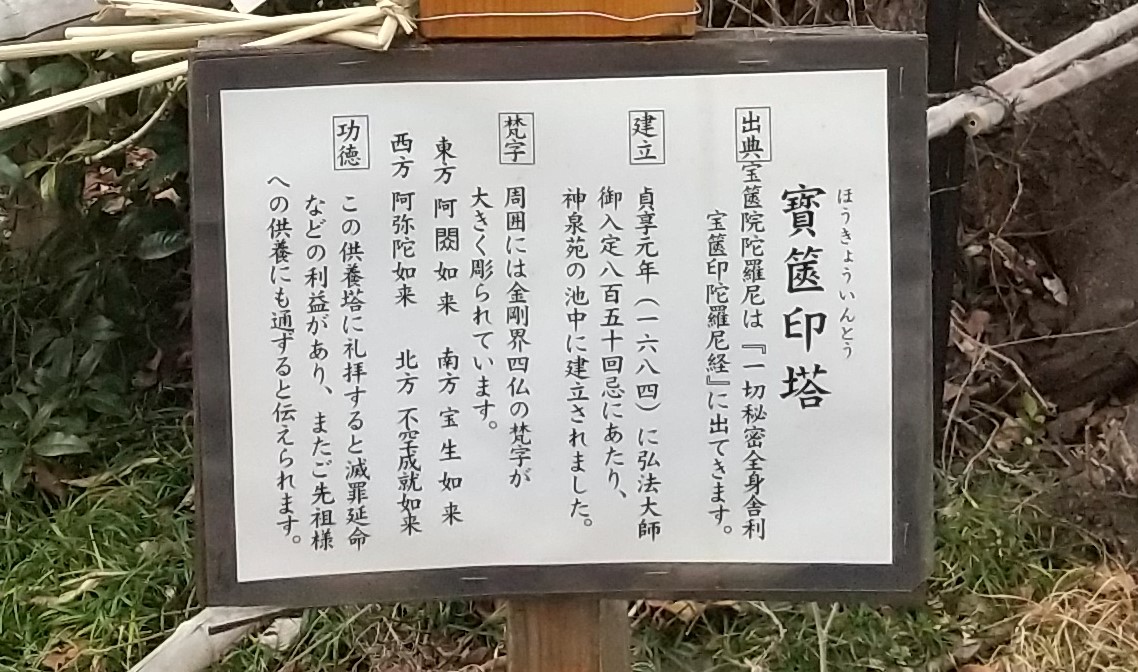 ほうきょういんとう
寶篋印塔
出典 宝篋院陀羅尼は『一切秘密全身舎利
宝篋印陀羅尼経』に出てきます。
建立
貞享元年（一六八四）に弘法大師
御入定八百五十回忌にあたり、
神泉苑の池中に建立されました。
梵字
周囲には金剛界四仏の梵字が
大きく彫られています。
東方 阿閦如来 南方 宝生如来
西方 阿弥陀如来 北方 不空成就如来
功徳
この供養塔に礼拝すると滅罪延命
などの利益があり、またご先祖様
への供養にも通ずると伝えられます。